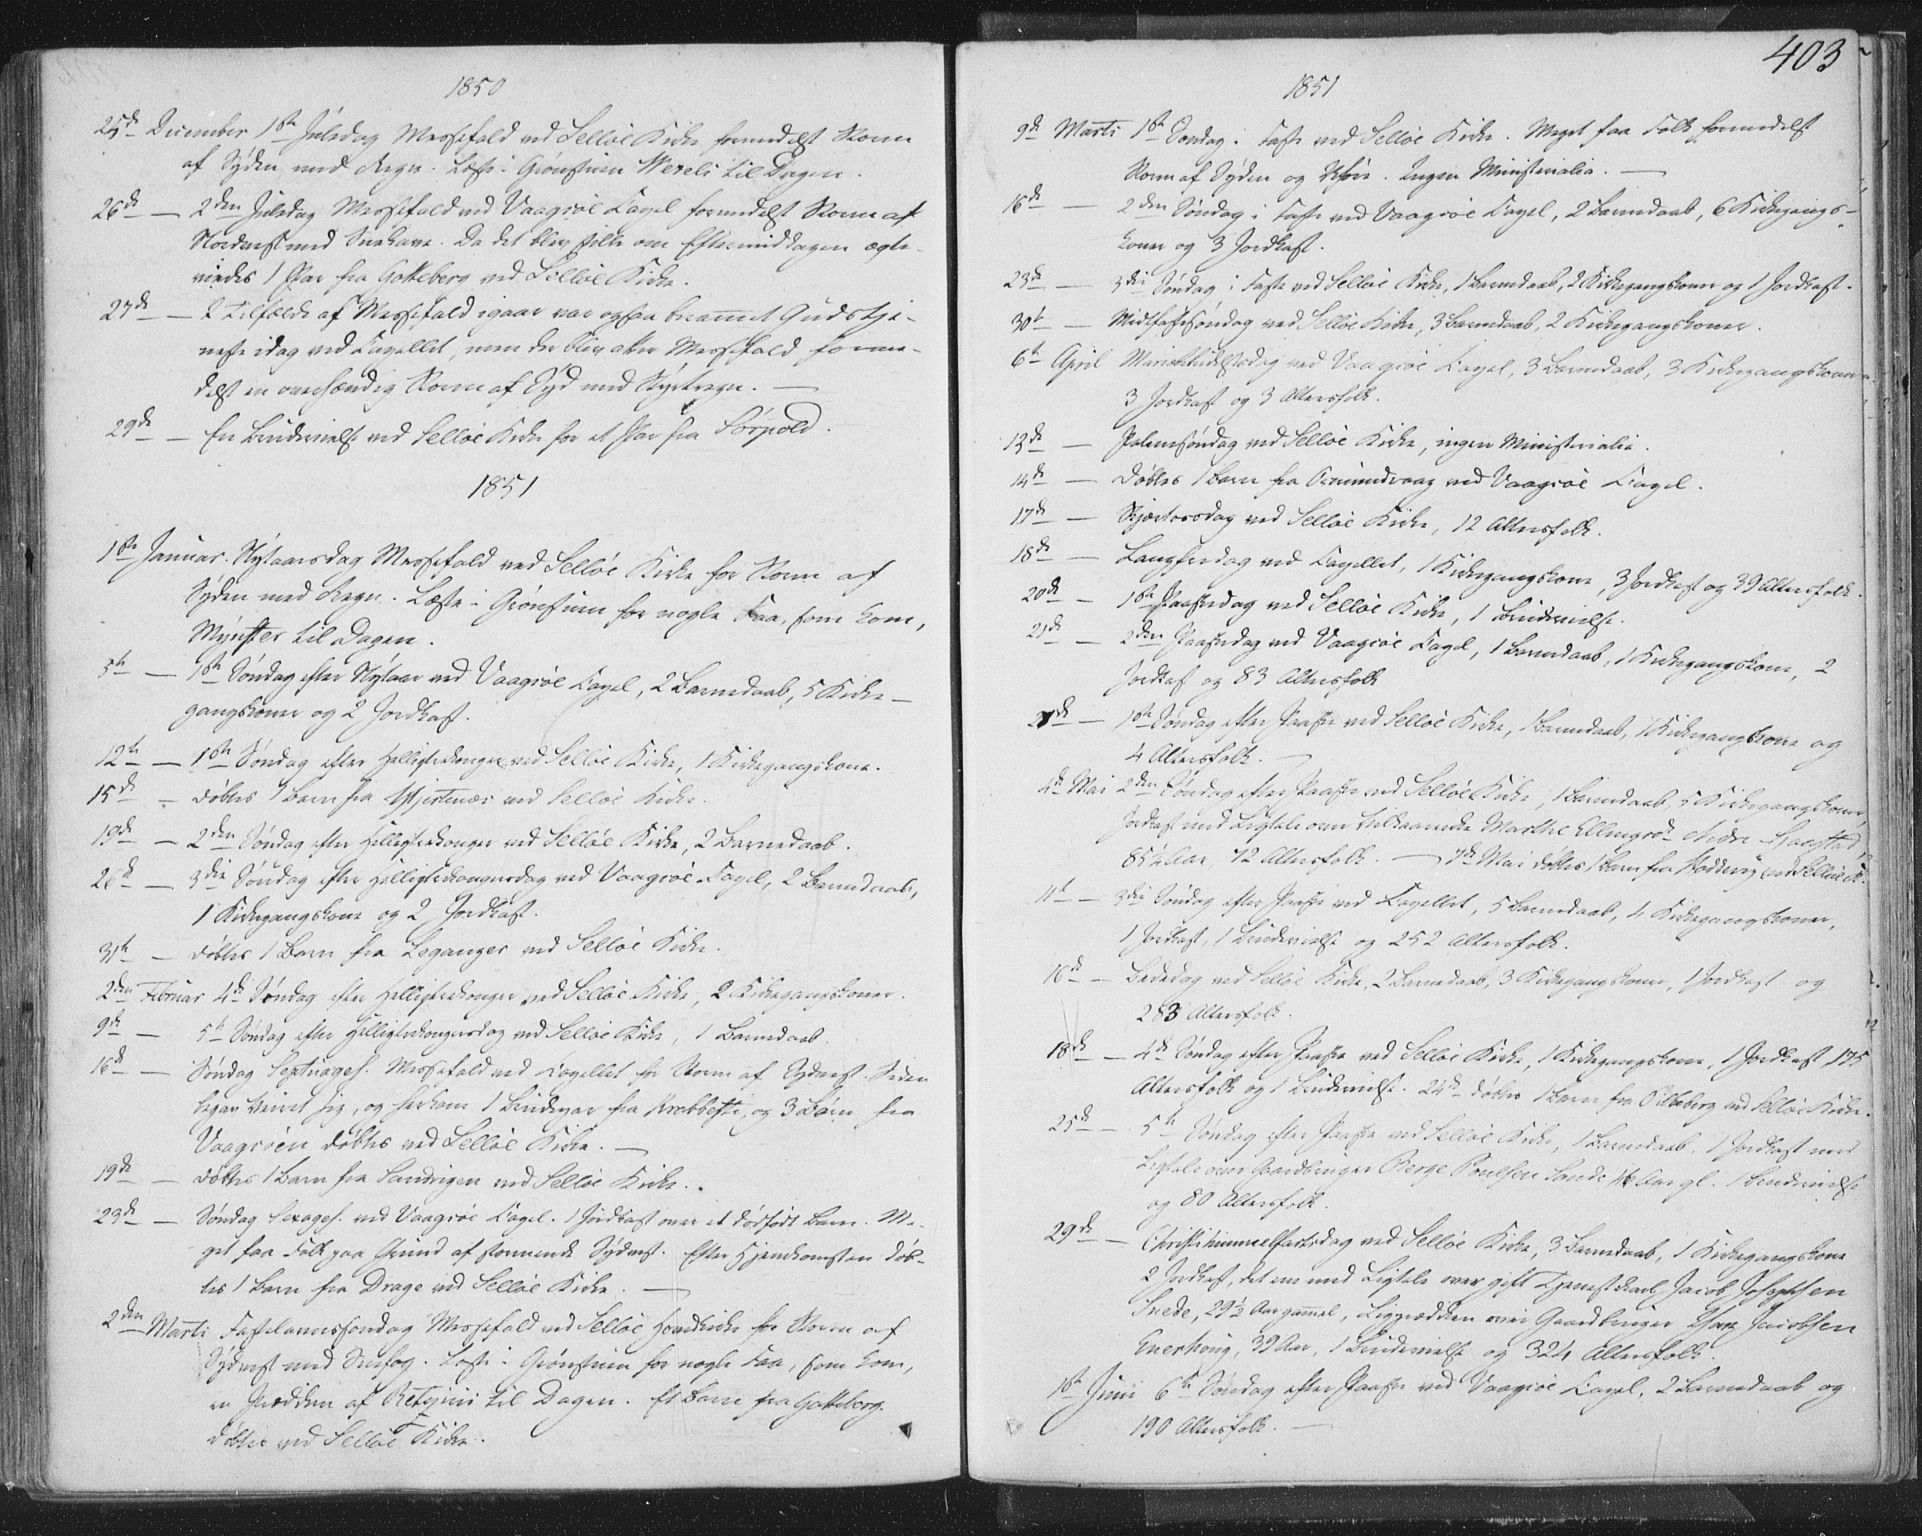 1850
25de December 1ste Juledag Messefald ved Selløe Kirke formedelst Storm
af Syden med Regn. Læste i Grønstuen Wexels til Dagen.
26de — 2den Juledag Messefald ved Vaagsøe Capel formedelst Storm af
Nordvest med Snekave. Da det blev stille om Eftermiddagen ægte-
viedes 1 Par fra Gotteberg ved Selløe Kirke.
27de — I Tilfælde af Messefald igaar var ogsaa berammet Gudstje-
neste idag ved Capellet, men der blev atter Messefald forme-
delst en overhændig Storm af Syd med Slyderegn. —
29de — En Brudevielse ved Selløe Kirke for et Par fra Sørpold.
1851
1ste Januar. Nytaarsdag Messefald ved Selløe Kirke for Storm af
Syden med Regn. Læste i Grønstuen for nogle Faa, som kom,
Mynster til Dagen.
5te — 1ste Søndag efter Nytaar ved Vaagsøe Capel, 2 Barnedaab, 5 Kirke-
gangskoner og 2 Jordkast.
12te — 1ste Søndag efter Helligtrekonger ved Selløe Kirke, 1 Kirkegangskone.
15de — døbtes 1 Barn fra Hjertenæs ved Selløe Kirke.
19de — 2den Søndag efter Helligtrekonger ved Selløe Kirke, 2 Barnedaab.
26de — 3die Søndag efter Helligtrekongersdag ved Vaagsøe Capel, 2 Barnedaab,
1 Kirkegangskone og 2 Jordkast.
31te — døbtes 1 Barn fra Leganger ved Selløe Kirke.
2den Februar 4de Søndag efter Helligtrekonger ved Selløe Kirke, 2 Kirkegangskoner.
9de — 5te Søndag efter Helligtrekongersdag ved Selløe Kirke, 1 Barnedaab.
16de — Søndag Septuages. Messefald ved Capellet for Storm af Sydvest. Siden
Veiret sig, og herkom 1 Brudepar fra Krabbestie, og 3 Børn fra
Vaagsøen døbtes ved Selløe Kirke. —
19de — døbtes 1 Barn fra Sandvigen ved Selløe Kirke.
23de — Søndag Sexages. ved Vaagsøe Capel. 1 Jordkast over et dødfødt Barn. Me-
get faa Folk paa Grund af stormende Sydvest. Efter Hjemkomsten døb-
tes 1 Barn fra Drage ved Selløe Kirke. —
2den Marti Fastelavnssøndag Messefald ved Selløe Hovedkirke for Storm af
Sydvest med Snefog. Læste i Grønstuen for nogle Faa, som kom,
en Prædiken af til Dagen. Et Barn fra Gotteberg
døbtes ved Selløe Kirke.
403
1851
9de Marti 1ste Søndag i Faste ved Selløe Kirke. Meget faa Folk formedelst
Storm af Syden og . Ingen Ministerialia. —
16de — 2den Søndag i Faste ved Vaagsøe Capel, 2 Barnedaab, 6 Kirkegangs-
koner og 3 Jordkast.
23de — 3die Søndag i Faste ved Selløe Kirke, 1 Barnedaab, 2 Kirkegangskoner og 1 Jordkast.
30te — Midfastesøndag ved Selløe Kirke, 3 Barnedaab, 2 Kirkegangskoner.
6te April Mariæbebudelsesdag ved Vaagsøe Capel, 3 Barnedaab, 3 Kirkegangskoner
3 Jordkast og 3 Altersfolk.
13de — Palmesøndag ved Selløe Kirke, ingen Ministerialia.
14de — døbtes 1 Barn fra Osmundvaag ved Vaagsøe Capel.
17de — Skjærtorsdag ved Selløe Kirke, 12 Altersfolk.
18de — Langfredag ved Capellet, 1 Kirkegangskone, 3 Jordkast og 39 Altersfolk.
20de — 1ste Paaskedag ved Selløe Kirke, 1 Brudevielse.
21de — 2den Paaskedag ved Vaagsøe Capel, 1 Barnedaab, 1 Kirkegangskone, 2
Jordkast og 83 Altersfolk
27de — 1ste Søndag efter Paaske ved Selløe Kirke, 1 Barnedaab, 1 Kirkegangskone og
4 Altersfolk. —
4de Mai 2den Søndag efter Paaske ved Selløe Kirke, 1 Barnedaab, 5 Kirkegangskoner,
Jordkast med Ligtale over Marthe Ellingsd. Maastad,
85½ Aar, 72 Altersfolk. — 7de Mai døbtes 1 Barn fra Hoddevig ved Selløe K.
11te — 3die Søndag efter Paaske ved Capellet, 5 Barnedaab, 4 Kirkegangskoner,
1 Jordkast, 1 Brudevielse og 252 Altersfolk.
16de — Bededag ved Selløe Kirke, 2 Barnedaab, 3 Kirkegangskoner, 1 Jordkast og
283 Altersfolk.
18de — 4de Søndag efter Paaske ved Selløe Kirke, 1 Kirkegangskone, 1 Jordkast 175
Altersfolk og 1 Brudevielse. 24de døbtes 1 Barn fra ved Selløe Kirke.
25de — 5te Søndag efter Paaske ved Selløe Kirke, 1 Barnedaab, 1 Jordkast med
Ligtale over Gaardbruger Børge Poulsen Sande Aar gl. 1 Brudevielse
og 80 Altersfolk.
29de — Christihimmelfartsdag ved Selløe Kirke, 3 Barnedaab, 1 Kirkegangskone
2 Jordkast, det ene med Ligtale over gift Tjenestekarl Jacob Josephsen
Sæde, 29½ Aar gammel, Ligprædiken over Gaardbruger Jacobsen
, 39 Aar, 1 Brudevielse og 324 Altersfolk.
1ste Juni 6te Søndag efter Paaske ved Vaagsøe Capel, 2 Barnedaab og
190 Altersfolk. —